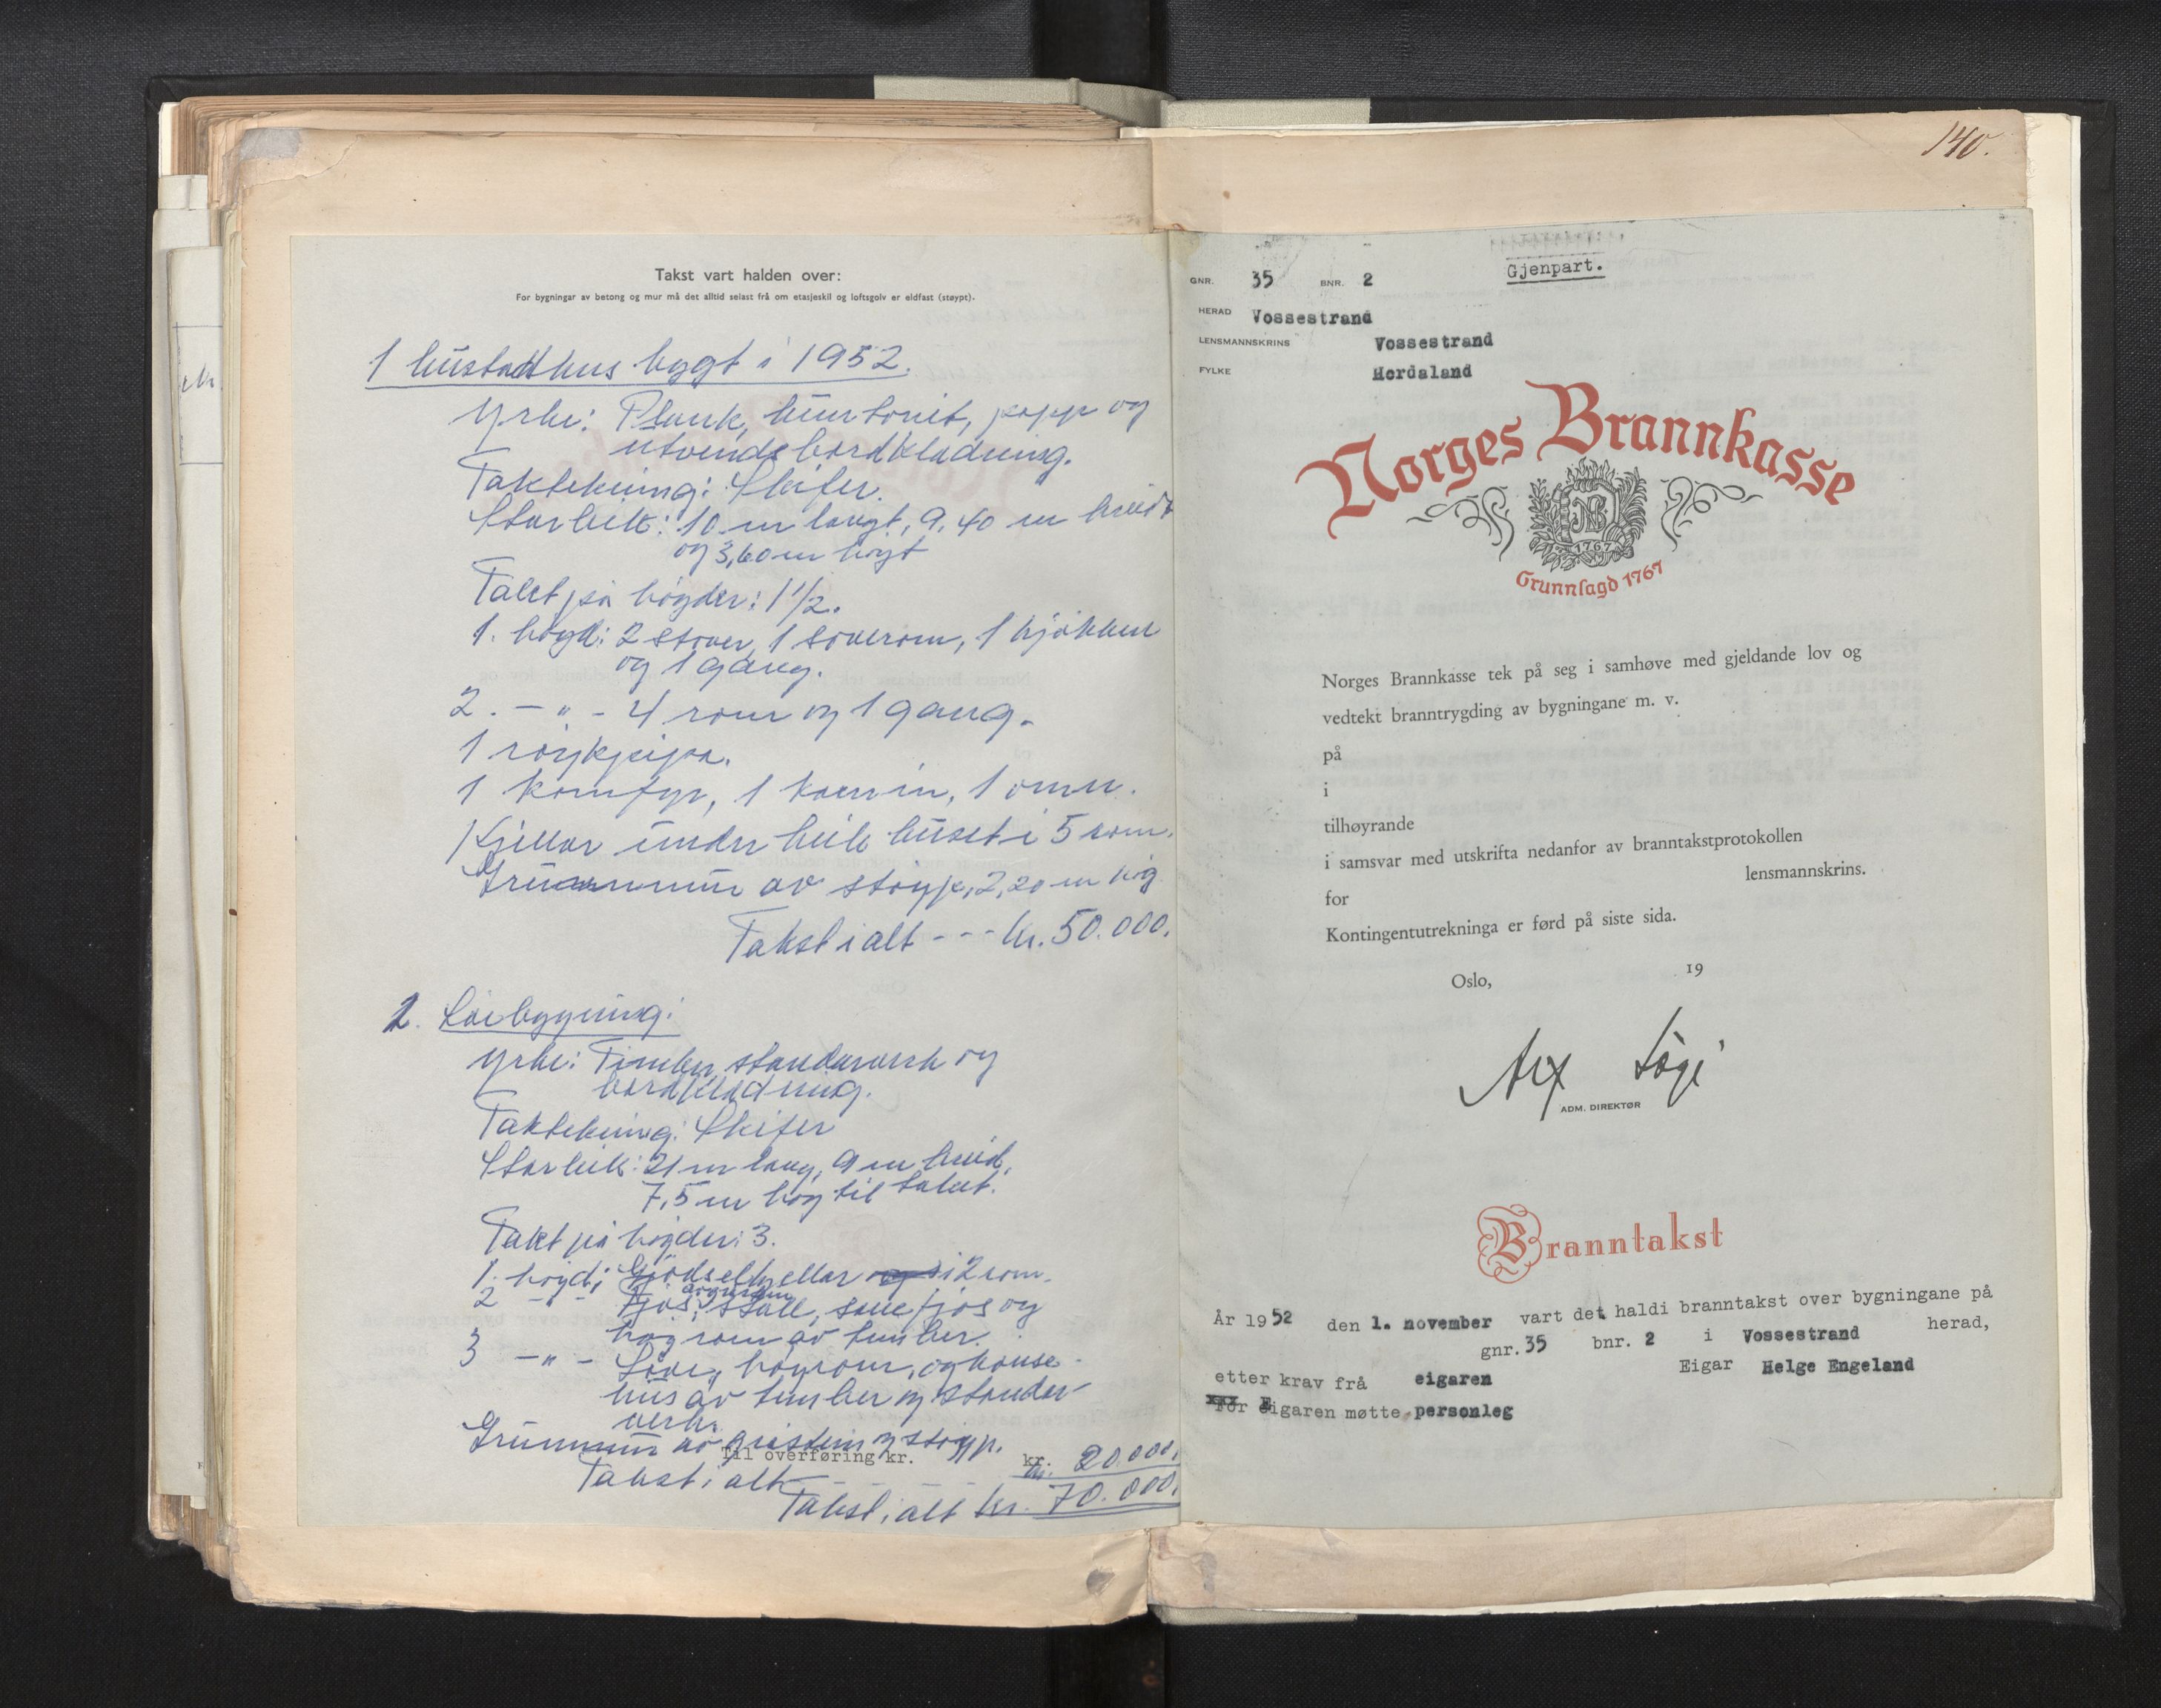 Takst vart halden over:
For bygningar av betong og mur må det alltid seiast frå om etasjeskil og loftsgolv er eldfast (støypt).
1 bustadhus bygt i 1952.
Yrke: Plank, huntonit, papp og
utvends bordkladning.
Taktekning: Skifer.
Storleik: 10 m langt, 9,40 m breidt
og 3,60 m høgt
Talet på høgder: 1 1/2.
1. høgd: 2 stover, 1 soverom, 1 kjøkken
og 1 gang.
2. -"- 4 rom og 1 gang.
1 røykpipa.
1 komfyr, 1 kamin, 1 omn.
Kjellar under heile huset i 5 rom.
Grunnmur av støyp, 2,20 m høg
Takst i alt --- kr. 50.000.
2. Løebygning:
Yrke: Timber, standarverk og
bordkladning.
Taktekning: Skifer
Storleik: 21 m lang, 9 m breid,
7,5 m høg til taket.
Talet på høgder: 3.
1. høgd: Gjødselkjellar i 2 rom.
2 -"- Fjøs, stall, sauefjøs og
høyrom av timber.
3 -"- Løve, høyrom, og hønse-
hus av timber og stander-
verk.
Grunnmur av gråstein og støyp.
Til overføring kr.
kr.
Takst i alt - - - kr. 20.000.
Takst i alt kr. 70.000.
140.
Gjenpart.
GNR. 35 BNR. 2
HERAD Vossestrand
LENSMANNSKRINS Vossestrand
FYLKE Hordaland
Norges Brannkasse
NB
1767
Grunnlagd 1767
Norges Brannkasse tek på seg i samhøve med gjeldande lov og
vedtekt branntrygding av bygningane m. v.
på
i
tilhøyrande
i samsvar med utskrifta nedanfor av branntakstprotokollen
for lensmannskrins.
Kontingentutrekninga er førd på siste sida.
Oslo, 19
ADM. DIREKTØR
Branntakst
År 1952 den 1. november vart det haldi branntakst over bygningane på
gnr. 35 bnr. 2 i Vossestrand herad,
etter krav frå eigaren Eigar Helge Engeland
For Eigaren møtte personleg